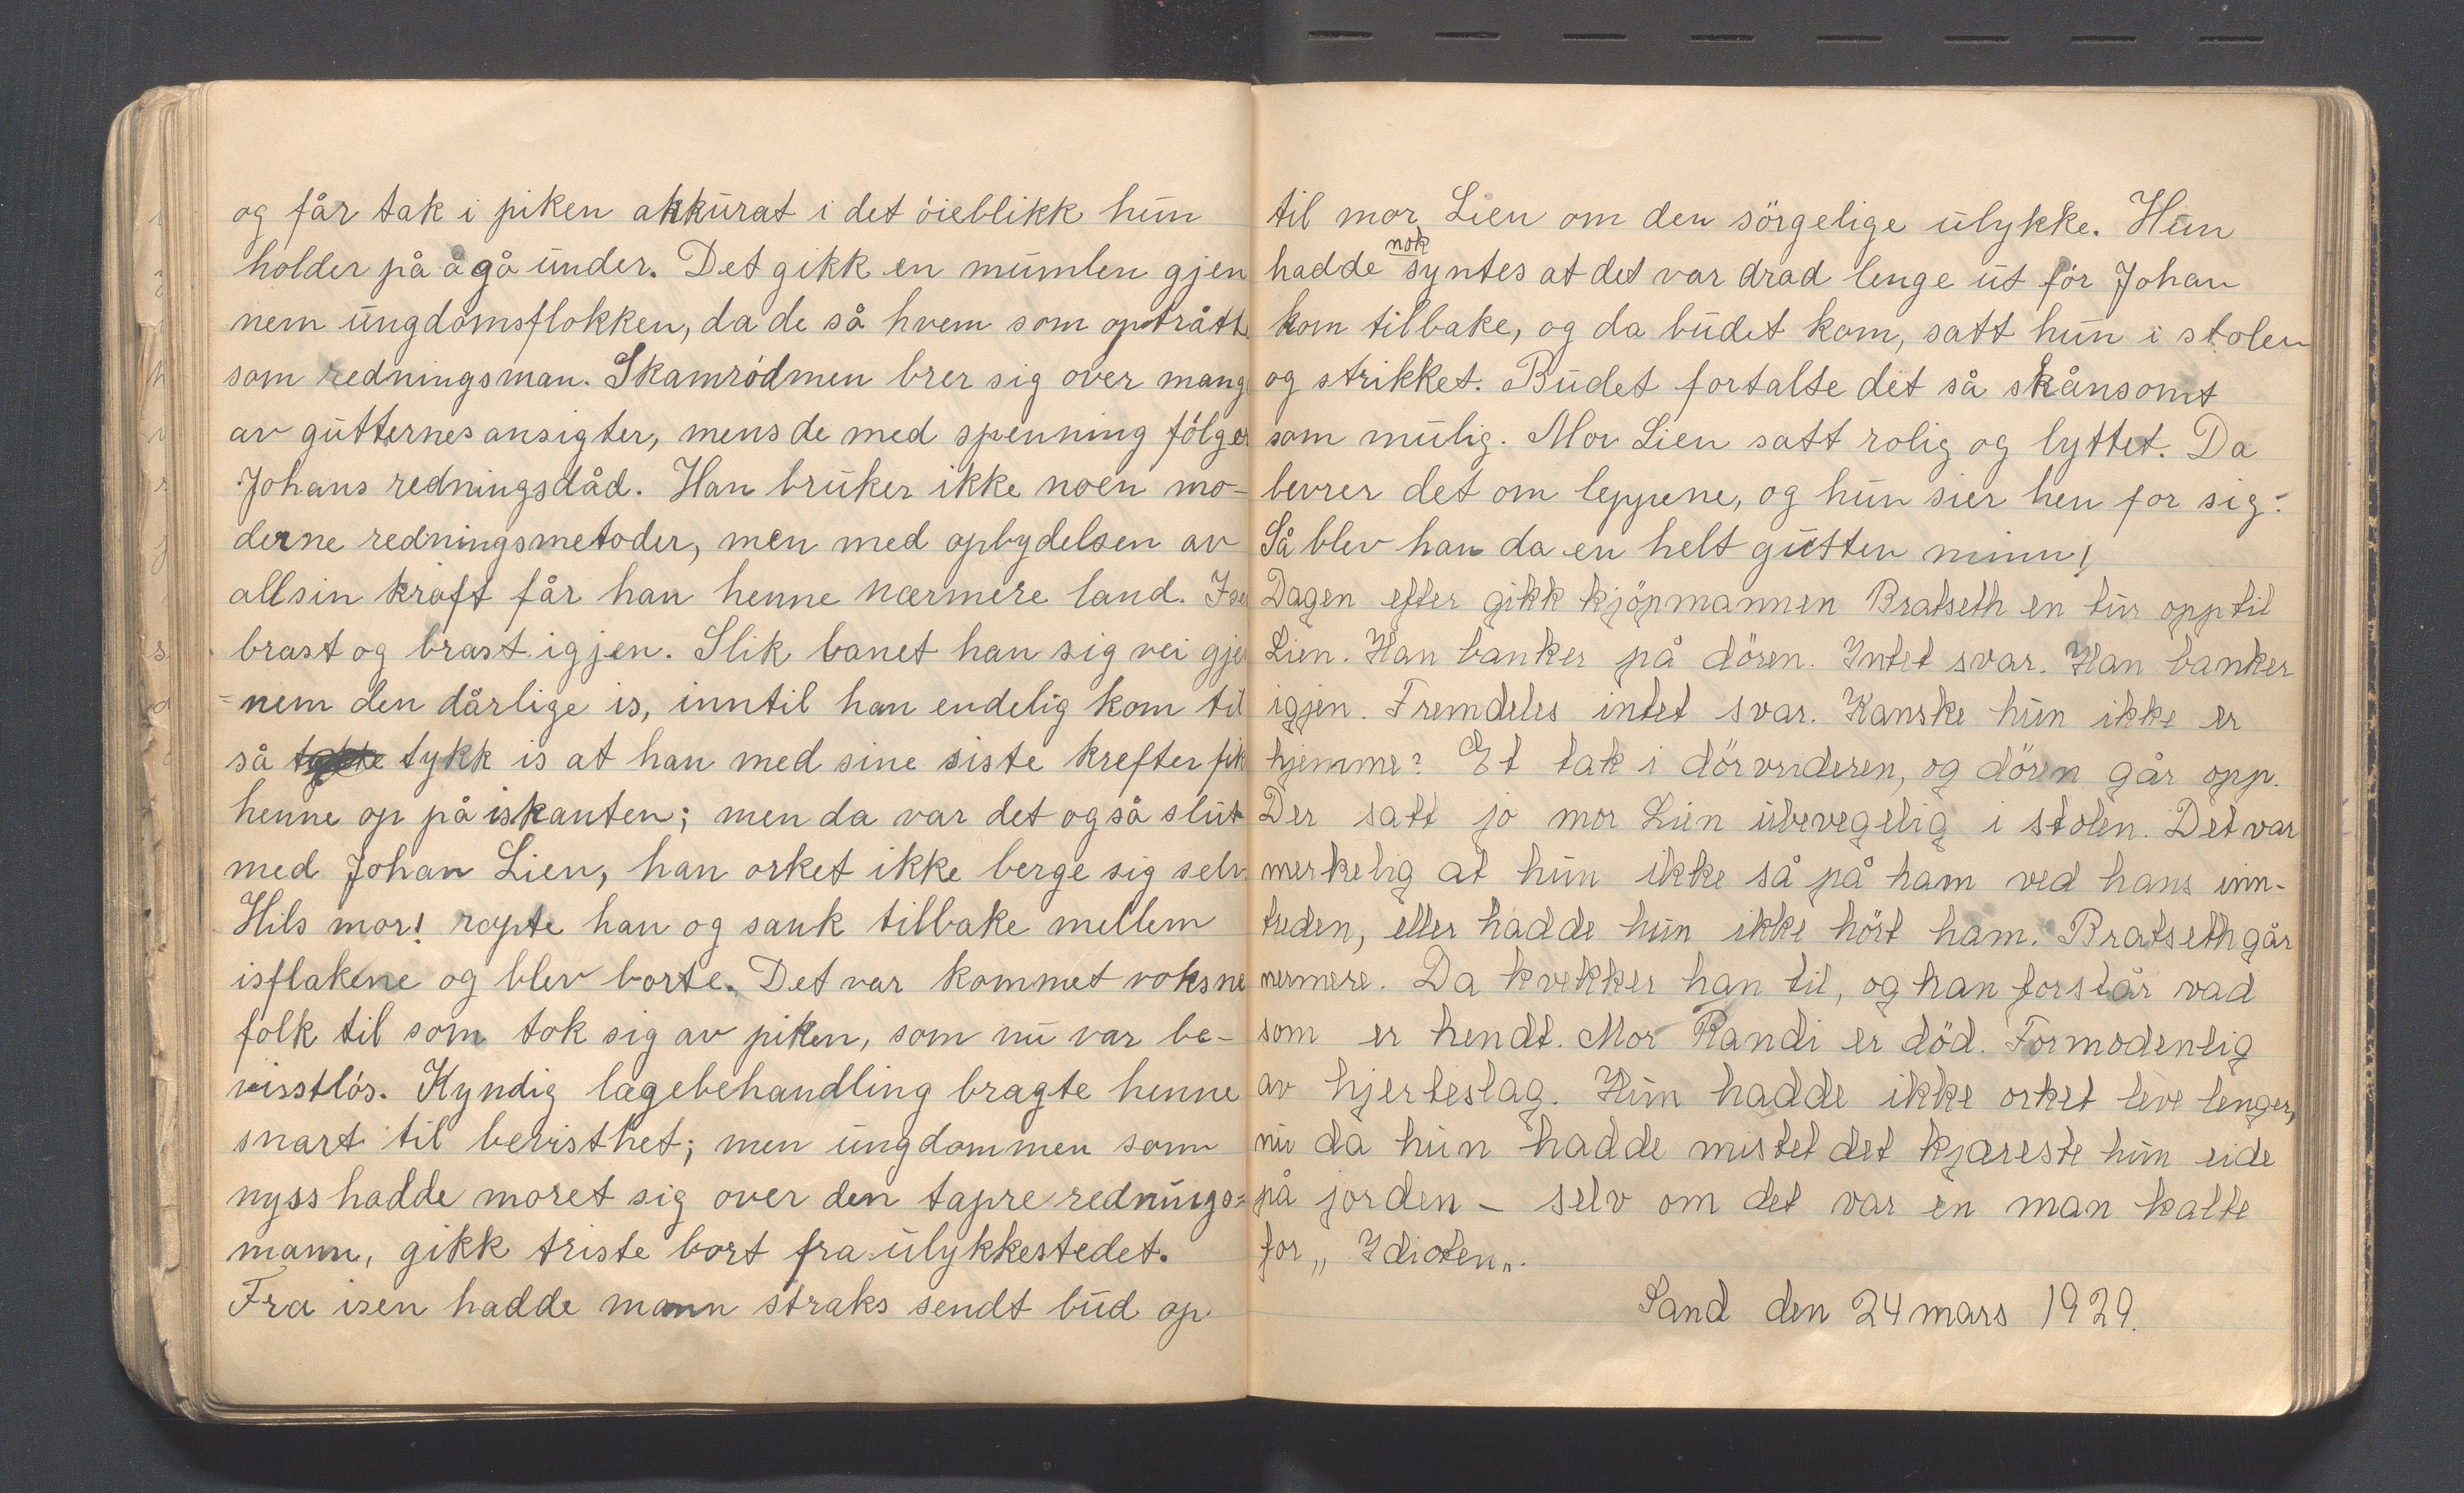 og får tak i piken akkurat i det öieblikk hun
holder på å gå under. Det gikk en mumlen gjen
nem ungdomsflokken, da de så hvem som optrått
som redningsman. Skamrödmen brer sig over mang
av gutternes ansigter, mens de med spenning fölger
Johans redningsdåd. Han bruker ikke noen mo-
derne redningsmetoder, men med opbydelsen av
all sin kraft får han henne nærmere land. Isen
brast og brast igjen. Slik banet han sig vei gjen
-nem den dårlige is, inntil han endelig kom til
så tykk is at han med sine siste krefter fik
henne op på iskanten; men da var det også slut
med Johan Lien, han orket ikke berge sig selv
Hils mor! ropte han og sank tilbake mellem
isflakene og blev borte. Det var kommet voksne
folk til som tok sig av piken, som nu var be-
visstlös. Kyndig lægebehandling bragte henne
snart til bevisthet; men ungdommen som
nyss hadde moret sig over den tapre rednings=
mann, gikk triste bort fra ulykkestedet.
Fra isen hadde mann straks sendt bud op
til mor Lien om den sörgelige ulykke. Hun
hadde nok syntes at det var drad lenge ut för Johan
kom tilbake, og da budet kom, satt hun i stolen
og strikket. Budet fortalte det så skånsomt
som mulig. Mor Lien satt rolig og lyttet. Da
bevrer det om leppene, og hun sier hen for sig:
Så blev han da en helt gutten minn!
Dagen efter gikk kjöpmannen Bratseth en tur opp til
Lien. Han banker på dören. Intet svar. Han banker
igjen. Fremdeles intet svar. Kanske hun ikke er
hjemme? Et tak i dörvrideren, og dören går opp.
Der satt jo mor Lien ubevegelig i stolen. Det var
merkelig at hun ikke så på ham ved hans inn-
treden, eller hadde hun ikke hört ham. Bratseth går
nermere. Da kvekker han til, og han forstår vad
som er hendt. Mor Randi er död. Formodentlig
av hjerteslag. Hun hadde ikke orket leve lenger,
nu da hun hadde mistet det kjæreste hun eide
på jorden - selv om det var en man kalte
for „ Idioten„.
Sand den 24 mars 1929.